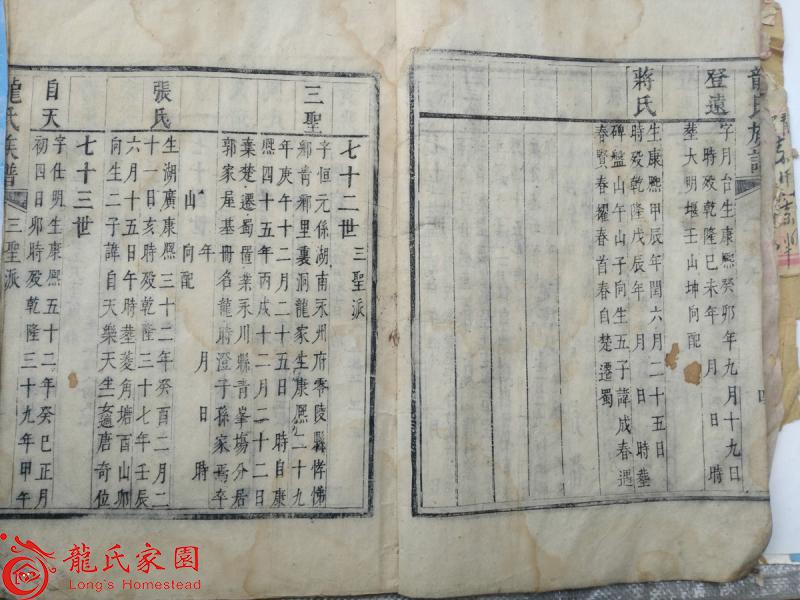 龍氏族譜
登遠
字月台生康熙癸卯年九月十九日
時殁乾隆己未年 月 日 時
葬大明堰壬山坤向配
蔣氏
生康熙甲辰年閏六月二十五日
時殁乾隆戊辰年 月 日 時葬
碑盤山午山子向生五子諱成春遇
春賢春耀春首春自楚遷蜀
四
七十二世 三聖派
三聖
字恒元係湖南永州府零陵縣
鄉青鄉里裏洞龍家生康熙二十九
年庚午十二月二十五日 時自康
熙四十五年丙戌十二月二十二日
棄楚遷蜀置業永川縣青峯塲分居
郭家屋基冊名龍時澄子孫家焉卒
年 月 日 時
山 向配
張氏
生湖廣康熙三十二年癸酉二月二
十一日亥時殁乾隆三十七年壬辰
六月十五日午時葬菱角塘酉山卯
向生二子諱自天樂天生女適唐奇位
七十三世
自天
字仕明生康熙五十二年癸巳正月
初四日卯時殁乾隆三十九年甲午
龍氏族譜 三聖派
龍氏家園
Long's Homestead